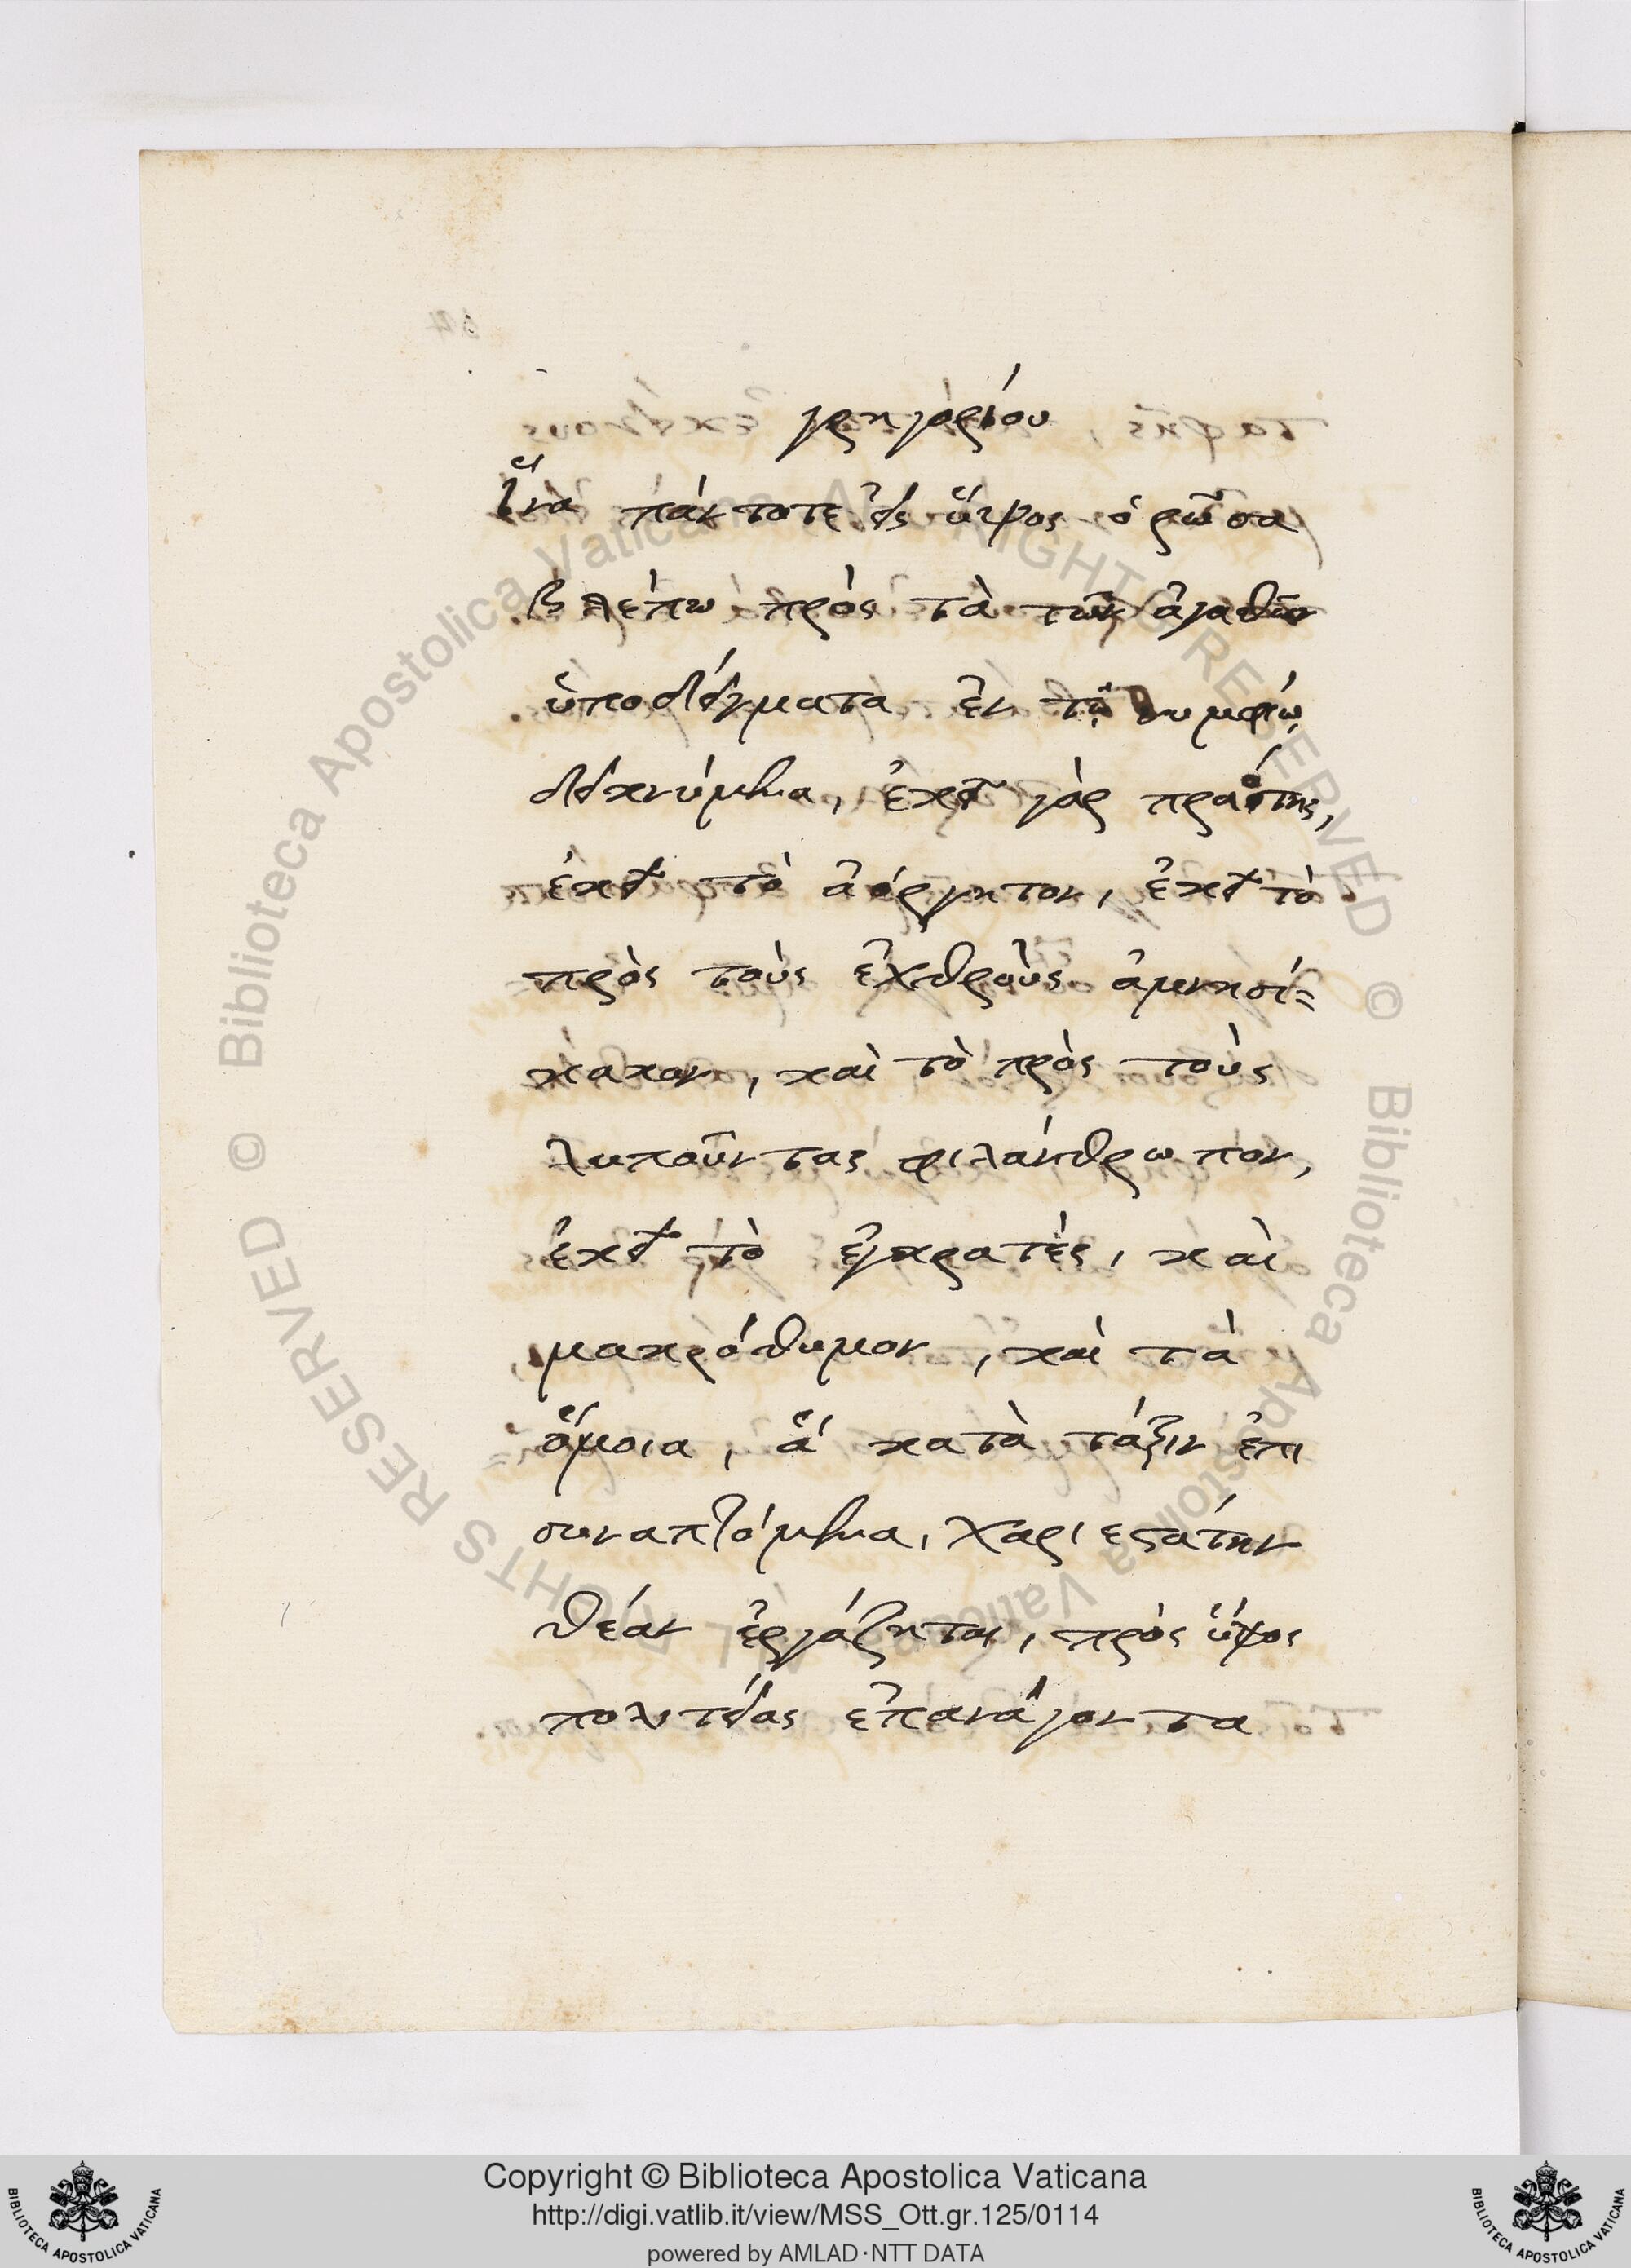 γρηγορίου
ἵνα πάντοτε εἰς ὕψος ὁρῶσα
βλέπω πρὸς τὰ τῶν ἀγαθῶν
ὑποδείγματα ἐν τῷ νυμφίῳ
δεικνύμενα, ἐκεῖ γὰρ πραότης,
ἐκεῖ τὸ ἀόργητον, ἐκεῖ τὸ
πρὸς τοὺς ἐχθροὺς ἀμνησί=
κακον, καὶ τὸ πρὸς τοὺς
λυποῦντας φιλάνθρωπον,
ἐκεῖ τὸ ἐγκρατές, καὶ
μακρόθυμον, καὶ τὰ
ὅμοια, ἅ κατὰ τάξιν ἐπι
συναπτόμενα, χαριεστάτην
θέαν ἐργάζηται, πρὸς ὕψος
πολιτείας ἐπανάγοντα
Copyright © Biblioteca Apostolica Vaticana
http://digi.vatlib.it/view/MSS_Ott.gr.125/0114
powered by AMLAD·NTT DATA
BIBLIOTECA APOSTOLICA VATICANA
BIBLIOTECA APOSTOLICA VATICANA
© Biblioteca Apostolica Vaticana ALL RIGHTS RESERVED
© Biblioteca Apostolica Vaticana ALL RIGHTS RESERVED